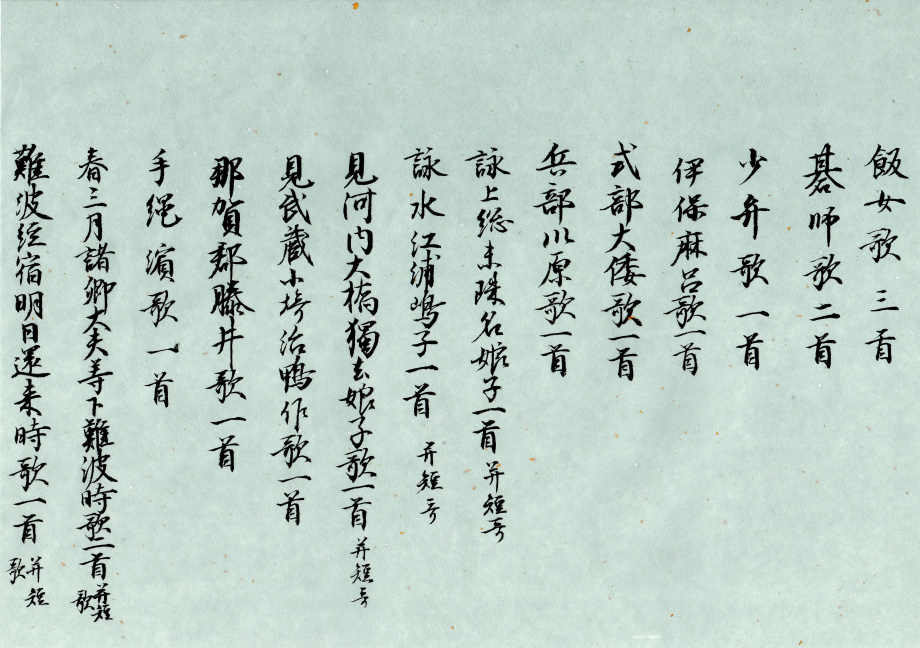 飯女歌三首
碁師歌二首
少弁歌一首
伊保麻呂歌一首
式部大倭歌一首
兵部川原歌一首
詠上総末珠名娘子一首 并短哥
詠水江浦嶋子一首 并短哥
見河内大橋獨去娘子歌一首 并短哥
見武蔵小埼沼鴨作歌一首
那賀郡曝井歌一首
手綱濱歌一首
春三月諸卿大夫等下難波時歌二首 并短歌
難波経宿明日還来時歌一首 并短歌